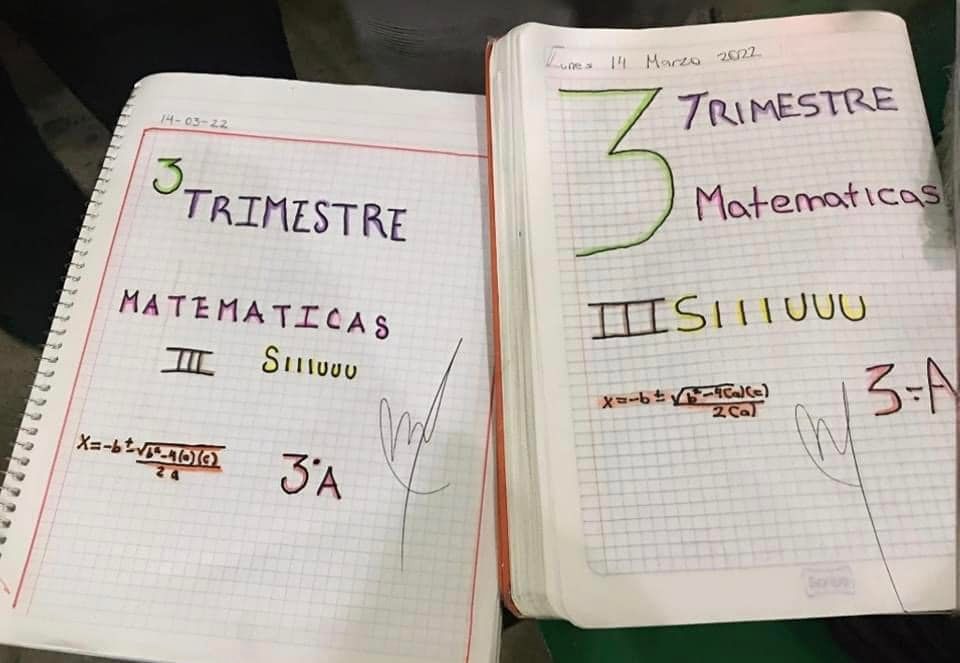 14-03-22
3
TRIMESTRE
MATEMATICAS
III SIIIUUU
x=-b±√b²-4(a)(c)
2a
3°A
Lunes 14 Marzo 2022
3 TRIMESTRE
Matematicas
III SIIIUUU
x=-b±√b²-4(a)(c)
2(a)
3-A